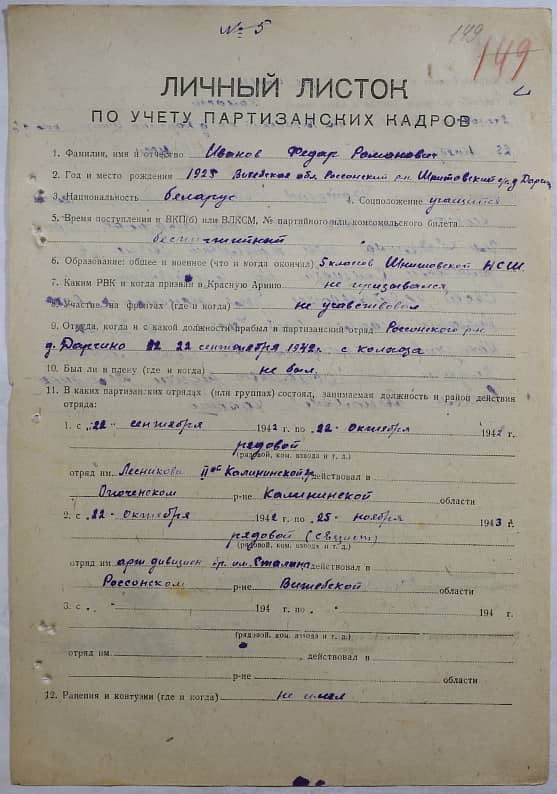 № 5
149
149
ЛИЧНЫЙ ЛИСТОК
ПО УЧЕТУ ПАРТИЗАНСКИХ КАДРОВ
1. Фамилия, имя и отчество Иванов Федар Романович
2. Год и место рождения 1925 Витебская обл. Россонский р-н.
3. Национальность беларус 4. Соцположение учащийся
5. Время поступления в ВКП(б) или ВЛКСМ, № партийного или комсомольского билета
беспартийный
6. Образование: общее и военное (что и когда окончил) 5 класов НСШ.
7. Каким РВК и когда призван в Красную Армию не призывался
8. Участие на фронтах (где и когда) не участвовал
9. Откуда, когда и с какой должности прибыл в партизанский отряд Россонского р-н
22 сентября 1942 г. с колхоза
10. Был ли в плену (где и когда) не был.
11. В каких партизанских отрядах (или группах) состоял, занимаемая должность и район действия
отряда:
1. с „22“ сентября 1942 г. по „22“ октября 1942 г.
рядовой
(рядовой, ком. взвода и т. д.)
отряд им. Лесникова Калининской действовал в
р-не Калининской области
2. с „22“ октября 1942 г. по „25“ ноября 1943 г.
рядовой (связист)
(рядовой, ком. взвода и т. д.)
отряд им арт дивизион бр. им. Сталина действовал в
Россонском р-не Витебской области
3. с „ 194 г. по „ “ 194 г.
(рядовой, ком. взвода и т. д.)
отряд им. , действовал в
р-не области
12. Ранения и контузии (где и когда) не имел